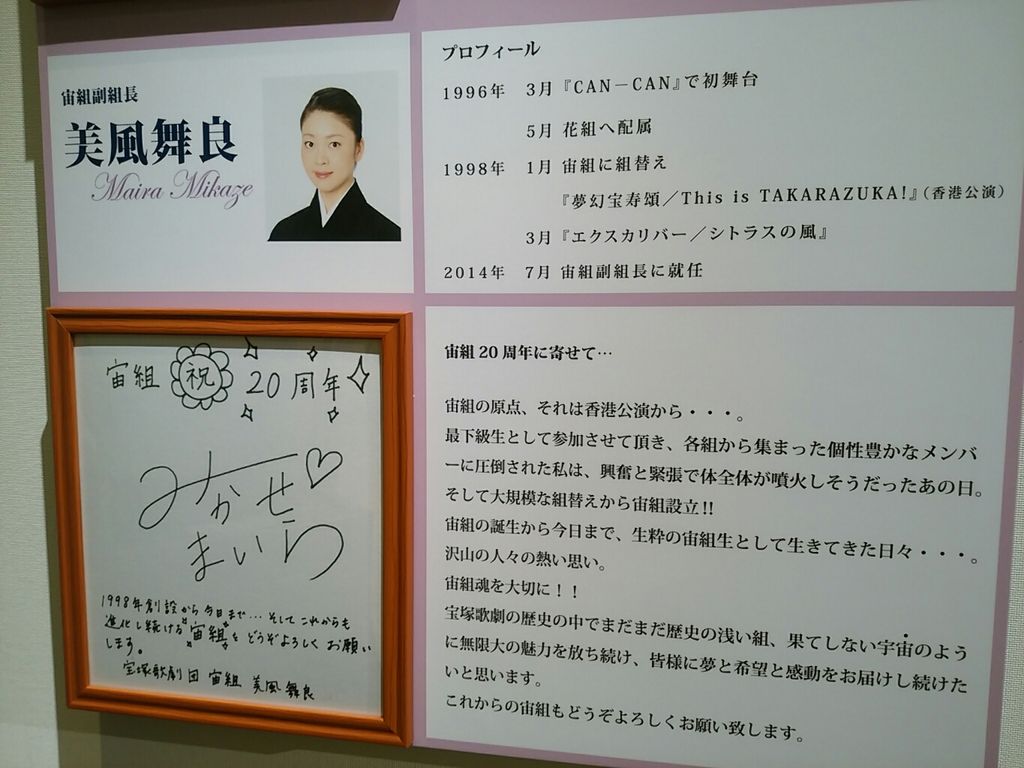 宙組副組長
美風舞良
Maira Mikaze
プロフィール
1996年 3月『CAN－CAN』で初舞台
5月 花組へ配属
1998年 1月 宙組に組替え
『夢幻宝寿頌／This is TAKARAZUKA!』（香港公演）
3月『エクスカリバー／シトラスの風』
2014年 7月 宙組副組長に就任
宙組 祝 20周年
みかせ♡
まいら
1998年創設から今日まで…そしてこれからも
進化し続ける"宙組"を どうぞよろしく お願い
します。
宝塚歌劇団 宙組 美風舞良
宙組20周年に寄せて…
宙組の原点、それは香港公演から・・・。
最下級生として参加させて頂き、各組から集まった個性豊かなメンバ
ーに圧倒された私は、興奮と緊張で体全体が噴火しそうだったあの日。
そして大規模な組替えから宙組設立!!
宙組の誕生から今日まで、生粋の宙組生として生きてきた日々・・・。
沢山の人々の熱い思い。
宙組魂を大切に！！
宝塚歌劇の歴史の中でまだまだ歴史の浅い組、果てしない宇宙のよう
に無限大の魅力を放ち続け、皆様に夢と希望と感動をお届けし続けた
いと思います。
これからの宙組もどうぞよろしくお願い致します。